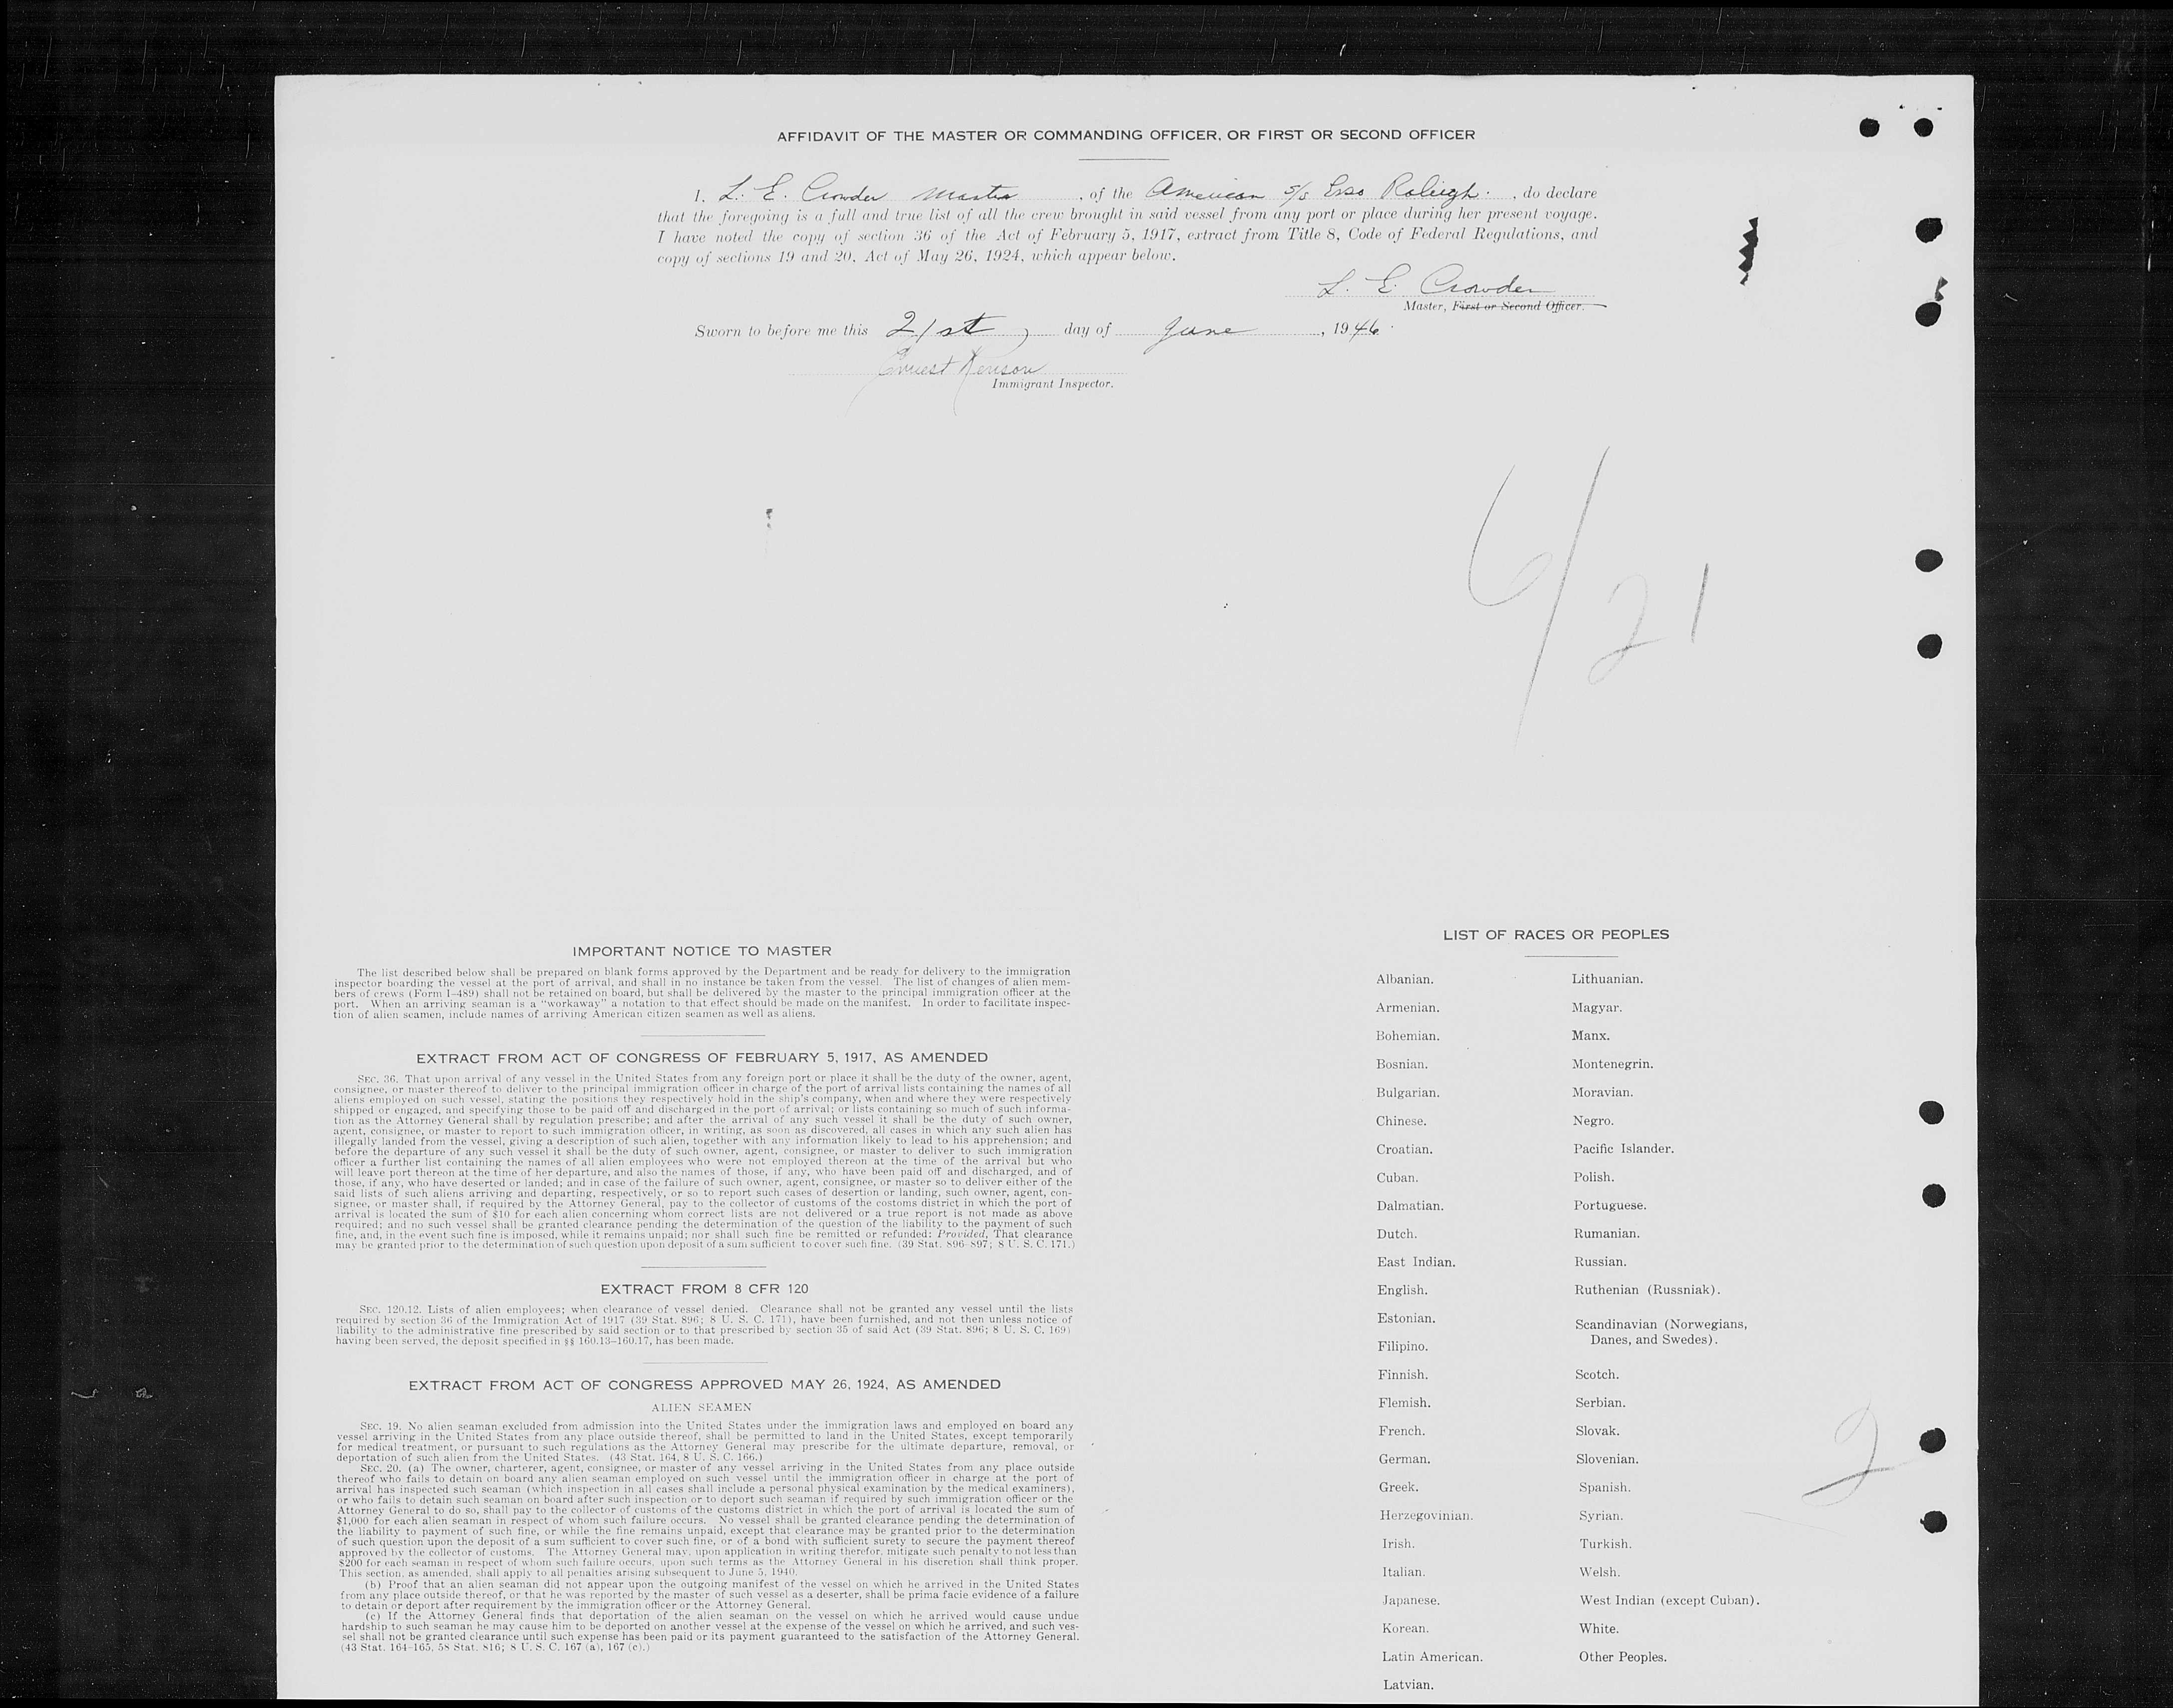 AFFIDAVIT OF THE MASTER OR COMMANDING OFFICER, OR FIRST OR SECOND OFFICER
I, L. E. Crowder Master, of the American S/S Esso Raleigh, do declare
that the foregoing is a full and true list of all the crew brought in said vessel from any port or place during her present voyage.
I have noted the copy of section 36 of the Act of February 5, 1917, extract from Title 8, Code of Federal Regulations, and
copy of sections 19 and 20, Act of May 26, 1924, which appear below.
L. E. Crowder
Master, First or Second Officer.
Sworn to before me this 21st day of June, 1946.
Ernest
Immigrant Inspector.
6/21
IMPORTANT NOTICE TO MASTER
The list described below shall be prepared on blank forms approved by the Department and be ready for delivery to the immigration
inspector boarding the vessel at the port of arrival, and shall in no instance be taken from the vessel. The list of changes of alien mem-
bers of crews (Form I–489) shall not be retained on board, but shall be delivered by the master to the principal immigration officer at the
port. When an arriving seaman is a "workaway" a notation to that effect should be made on the manifest. In order to facilitate inspec-
tion of alien seamen, include names of arriving American citizen seamen as well as aliens.
EXTRACT FROM ACT OF CONGRESS OF FEBRUARY 5, 1917, AS AMENDED
SEC. 36. That upon arrival of any vessel in the United States from any foreign port or place it shall be the duty of the owner, agent,
consignee, or master thereof to deliver to the principal immigration officer in charge of the port of arrival lists containing the names of all
aliens employed on such vessel, stating the positions they respectively hold in the ship's company, when and where they were respectively
shipped or engaged, and specifying those to be paid off and discharged in the port of arrival; or lists containing so much of such informa-
tion as the Attorney General shall by regulation prescribe; and after the arrival of any such vessel it shall be the duty of such owner,
agent, consignee, or master to report to such immigration officer, in writing, as soon as discovered, all cases in which any such alien has
illegally landed from the vessel, giving a description of such alien, together with any information likely to lead to his apprehension; and
before the departure of any such vessel it shall be the duty of such owner, agent, consignee, or master to deliver to such immigration
officer a further list containing the names of all alien employees who were not employed thereon at the time of the arrival but who
will leave port thereon at the time of her departure, and also the names of those, if any, who have been paid off and discharged, and of
those, if any, who have deserted or landed; and in case of the failure of such owner, agent, consignee, or master so to deliver either of the
said lists of such aliens arriving and departing, respectively, or so to report such cases of desertion or landing, such owner, agent, con-
signee, or master shall, if required by the Attorney General, pay to the collector of customs of the costoms district in which the port of
arrival is located the sum of $10 for each alien concerning whom correct lists are not delivered or a true report is not made as above
required; and no such vessel shall be granted clearance pending the determination of the question of the liability to the payment of such
fine, and, in the event such fine is imposed, while it remains unpaid; nor shall such fine be remitted or refunded: Provided, That clearance
may be granted prior to the determination of such question upon deposit of a sum sufficient to cover such fine. (39 Stat. 896–897; 8 U. S. C. 171.)
EXTRACT FROM 8 CFR 120
SEC. 120.12. Lists of alien employees; when clearance of vessel denied. Clearance shall not be granted any vessel until the lists
required by section 36 of the Immigration Act of 1917 (39 Stat. 896; 8 U. S. C. 171), have been furnished, and not then unless notice of
liability to the administrative fine prescribed by said section or to that prescribed by section 35 of said Act (39 Stat. 896; 8 U. S. C. 169)
having been served, the deposit specified in §§ 160.13–160.17, has been made.
EXTRACT FROM ACT OF CONGRESS APPROVED MAY 26, 1924, AS AMENDED
ALIEN SEAMEN
SEC. 19. No alien seaman excluded from admission into the United States under the immigration laws and employed on board any
vessel arriving in the United States from any place outside thereof, shall be permitted to land in the United States, except temporarily
for medical treatment, or pursuant to such regulations as the Attorney General may prescribe for the ultimate departure, removal, or
deportation of such alien from the United States. (43 Stat. 164, 8 U. S. C. 166.)
SEC. 20. (a) The owner, charterer, agent, consignee, or master of any vessel arriving in the United States from any place outside
thereof who fails to detain on board any alien seaman employed on such vessel until the immigration officer in charge at the port of
arrival has inspected such seaman (which inspection in all cases shall include a personal physical examination by the medical examiners),
or who fails to detain such seaman on board after such inspection or to deport such seaman if required by such immigration officer or the
Attorney General to do so, shall pay to the collector of customs of the customs district in which the port of arrival is located the sum of
$1,000 for each alien seaman in respect of whom such failure occurs. No vessel shall be granted clearance pending the determination of
the liability to payment of such fine, or while the fine remains unpaid, except that clearance may be granted prior to the determination
of such question upon the deposit of a sum sufficient to cover such fine, or of a bond with sufficient surety to secure the payment thereof
approved by the collector of customs. The Attorney General may, upon application in writing therefor, mitigate such penalty to not less than
$200 for each seaman in respect of whom such failure occurs, upon such terms as the Attorney General in his discretion shall think proper.
This section, as amended, shall apply to all penalties arising subsequent to June 5, 1940.
(b) Proof that an alien seaman did not appear upon the outgoing manifest of the vessel on which he arrived in the United States
from any place outside thereof, or that he was reported by the master of such vessel as a deserter, shall be prima facie evidence of a failure
to detain or deport after requirement by the immigration officer or the Attorney General.
(c) If the Attorney General finds that deportation of the alien seaman on the vessel on which he arrived would cause undue
hardship to such seaman he may cause him to be deported on another vessel at the expense of the vessel on which he arrived, and such ves-
sel shall not be granted clearance until such expense has been paid or its payment guaranteed to the satisfaction of the Attorney General.
(43 Stat. 164–165, 58 Stat. 816; 8 U. S. C. 167 (a), 167 (c).)
LIST OF RACES OR PEOPLES
Albanian.
Armenian.
Bohemian.
Bosnian.
Bulgarian.
Chinese.
Croatian.
Cuban.
Dalmatian.
Dutch.
East Indian.
English.
Estonian.
Filipino.
Finnish.
Flemish.
French.
German.
Greek.
Herzegovinian.
Irish.
Italian.
Japanese.
Korean.
Latin American.
Latvian.
Lithuanian.
Magyar.
Manx.
Montenegrin.
Moravian.
Negro.
Pacific Islander.
Polish.
Portuguese.
Rumanian.
Russian.
Ruthenian (Russniak).
Scandinavian (Norwegians,
Danes, and Swedes).
Scotch.
Serbian.
Slovak.
Slovenian.
Spanish.
Syrian.
Turkish.
Welsh.
West Indian (except Cuban).
White.
Other Peoples.
2